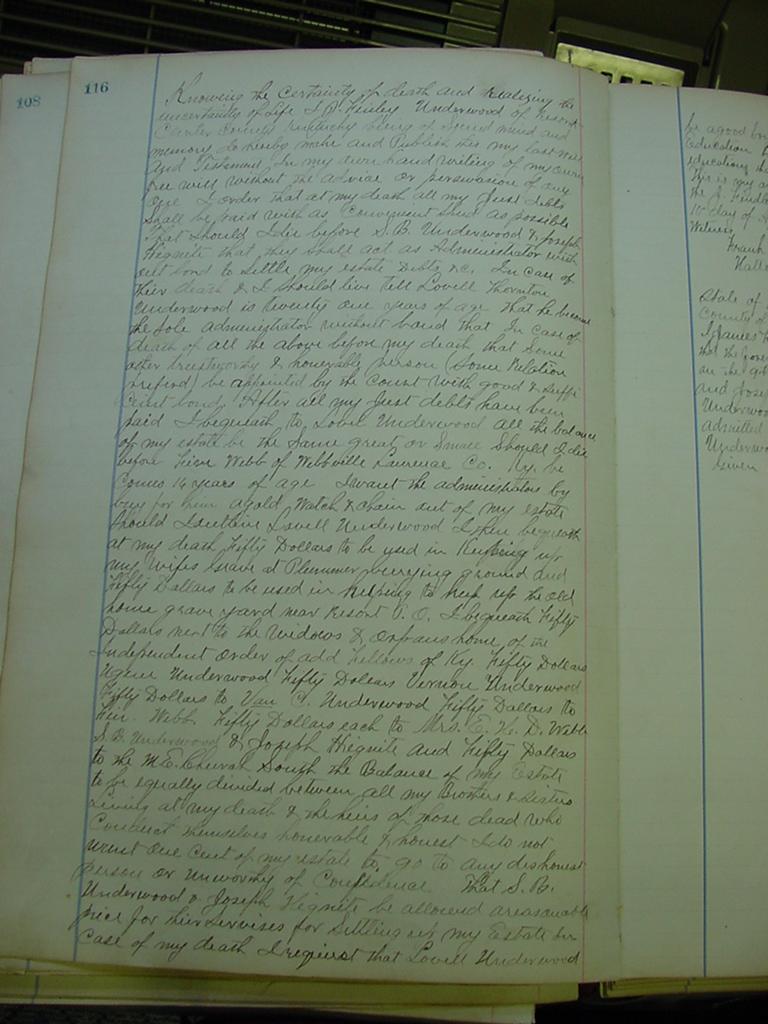 108
116
Knowing the Certainty of death and Realizing the
uncertainty of Life I D. Finley Underwood of Resort
Carter County Kentucky being of Sound mind and
memory do hereby make and Publish this my last Will
And Testament. In my own hand writing of my own
free will without the advice or perswasion of any
One I order that at my death all my Just debts
Shall be paid with as Convenient Speed as possible
That Should I die before S. B. Underwood & Joseph
Hignite that they shall act as Administrator with
out bond to Settle my estate Debts &c. In Case of
their death & I Should live till Lovell Thornton
Underwood is twenty one years of age that he become
the Sole administrator without band that In Case of
death of all the above before my death that Some
other trustworthy & honerable person (Some Relation
prefered) be appointed by the Court with good & Suffi
cient bond. After all my Just debts have been
paid I bequeath to Lovel Underwood all the balance
of my estate be the Same great or Small Should I die
before Webb of Webbville Lawrence Co. Ky. be
Comes 16 years of age I want the administrators by
buy for him a gold Watch & chain out of my estate
Should I outlive Lovell Underwood I then bequeath
at my death Fifty Dollars to be used in Keeping up
my wifes Grave at Plummer burrying ground and
Fifty Dollars to be used in helping to keep up the old
home grave yard near Resort P. O. I bequeath Fifty
Dollars next to the Widows & Orphans home, of the
Independent Order of add Fellows of Ky. Fifty Dollars
Ugene Underwood Fifty Dollars Vernon Underwood
Fifty Dollars to Van C. Underwood Fifty Dollars to
Webb. Fifty Dollars each to Mrs. E. D. Webb
S. B. Underwood & Joseph Hignite and Fifty Dollars
to the M.E. Church South the Balance of my Estate
to be equally divided between all my Brothers & Sisters
Living at my death & the heirs of those dead who
Conduct themselves honerable & honest I do not
want One Cent of my estate to go to any dishonest
person or Unworthy of Confidence That S. B.
Underwood & Joseph Hignite be allowed a reasonable
price for their Services for Settling up my Estate In
Case of my death I request that Lovell Underwood
be a good
Education
education
This is my
the J.
10 day of
Witness
Frank
State of
County of
I James
that the
on the
and Jose
Underwoo
admitted
Underwo
Given